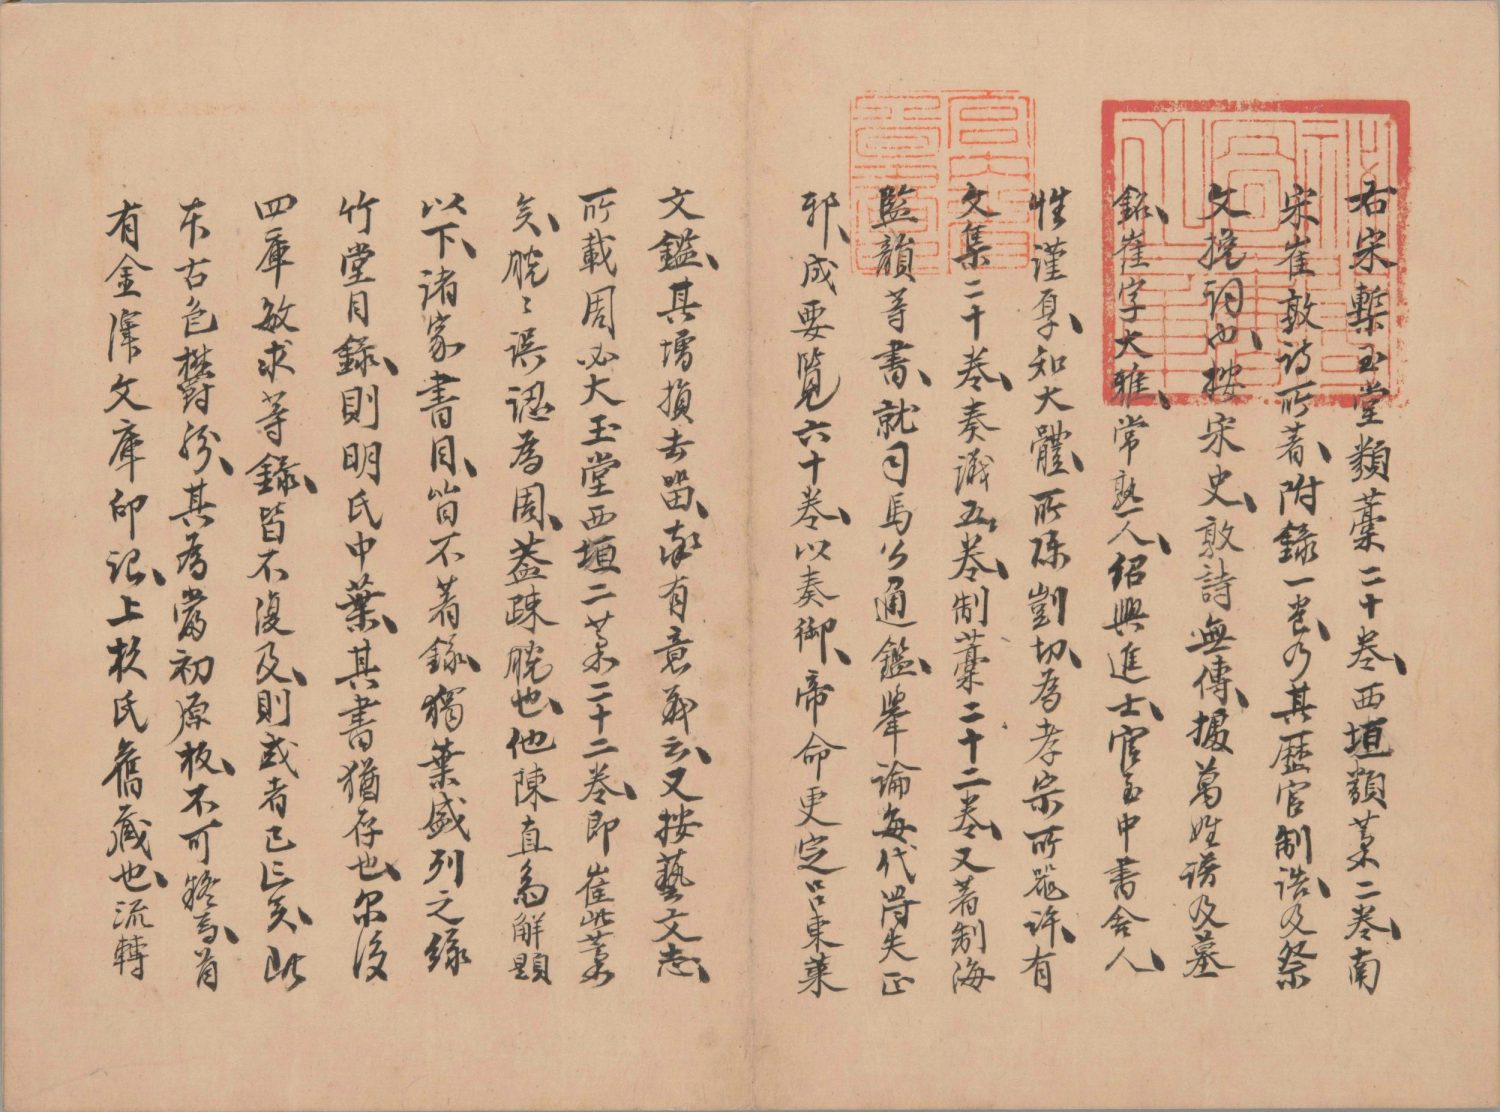 右宋槧玉堂類藁二十卷、西垣類藁二卷、南
宋崔敦詩所著、附錄一卷、乃其歷官制誥、及祭
文挽詞也、按宋史、敦詩無傳、據萬姓譜及墓
銘、崔字大雅、常熟人、紹興進士、官至中書舍人、
性謹厚、知大體、所陳剴切、為孝宗所器許、有
文集二十卷、奏議五卷、制藁二十二卷、又著制海
監韻等書、就司馬公通鑑、舉論每代得失正
邪、成要覽六十卷、以奏御、帝命更定呂東萊
文鑑、其增損去留、率有意義云、又按藝文志、
所載周必大玉堂西垣二藁二十二卷、即崔此藁
矣、脫々誤認為周、蓋疎脫也、他陳直為解題
以下、諸家書目、皆不著錄、獨葉盛列之菉
竹堂目錄、則明氏中葉、其書猶存也、尔後
四庫敏求等錄、皆不復及、則或者已亡矣、此
本古色欝紛、其為當初原板、不可疑焉、首
有金澤文庫印記、上杉氏舊藏也、流轉